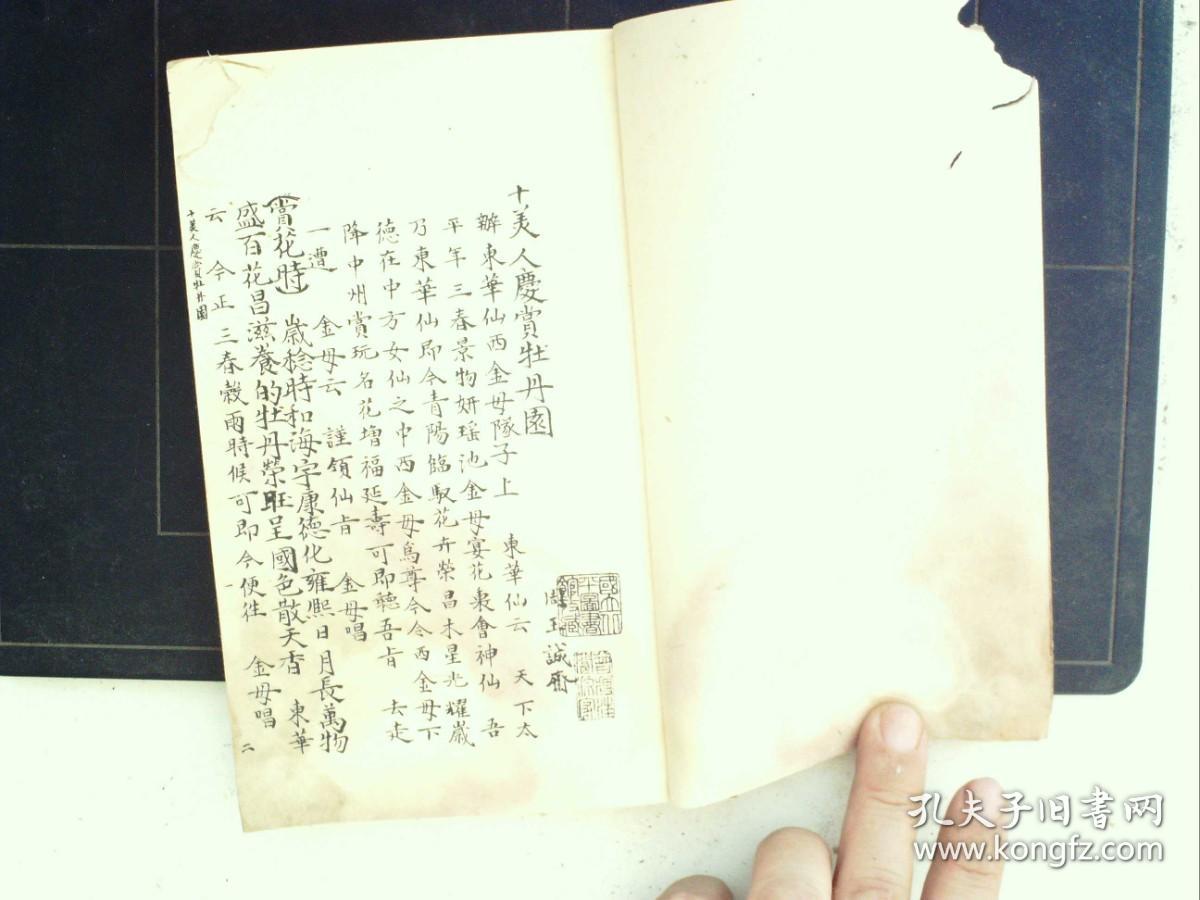 十美人慶賞牡丹園
誠齋
辦東華仙西金母隊子上 東華仙云 天下太
平年三春景物妍瑤池金母宴花裏會神仙 吾
乃東華仙即今青陽臨馭花卉榮昌木星光耀歲
德在中方女仙之中西金母爲尊今令西金母下
降中州賞玩名花增福延壽可即聽吾旨 去走
一遭 金母云 謹領仙旨 金母唱
賞花時 歲稔時和海宇康德化雍熙日月長萬物
盛百花昌滋養的牡丹榮旺呈國色散天香 東華
云 今正三春穀雨時候可即今便往 金母唱
十美人慶賞牡丹園
二
國立北
平圖書
館收藏
孔夫子旧书网
www.kongfz.com